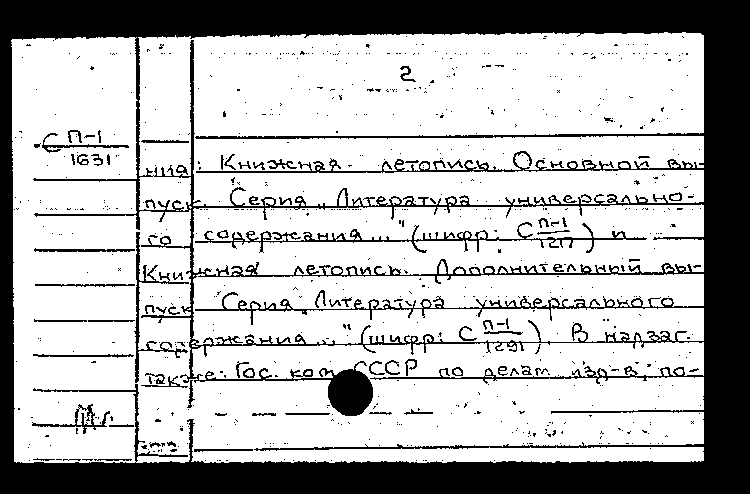 2
С П-1
1631
ния: Книжная летопись. Основной вы-
пуск. Серия „Литература универсально-
го содержания..." (шифр: С П-1
1217) и
Книжная летопись. Дополнительный вы-
пуск Серия „Литература универсального
содержания..." (шифр: С П-1
1291). В надзаг.
также: Гос. ком. СССР по делам изд-в, по-